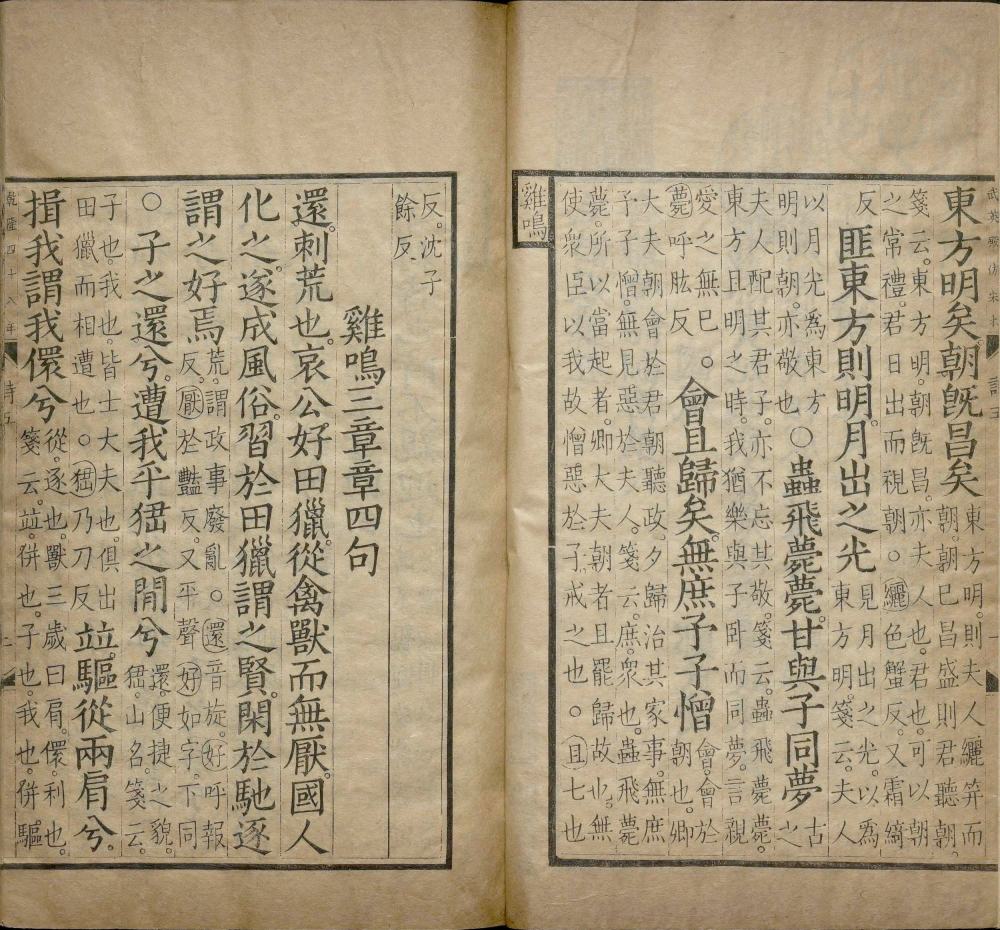 武英殿仿宋本 詩五 一
東方明矣朝既昌矣
東方明。則夫人纚笄而
朝。朝已昌盛則君聽朝。
箋云。東方明。朝既昌。亦夫人也。君也。可以朝
之常禮。君日出而視朝。○纚色蟹反。又霜綺
反
匪東方則明。月出之光
見月出之光。以爲
東方明。箋云。夫人
以月光爲東方
明則朝。亦敬也
○蟲飛薨薨。甘與子同夢
古
之
夫人配其君子。亦不忘其敬。箋云。蟲飛薨薨。
東方且明之時。我猶樂與子卧而同夢。言親
愛之無已。○
薨呼肱反
會且歸矣。無庶予子憎
會。會於
朝也。卿
大夫朝會於君朝聽政。夕歸治其家事。無庶
予子憎。無見惡於夫人。箋云。庶。衆也。蟲飛薨
薨。所以當起者。卿大夫朝者且罷歸故也。無
使衆臣以我故憎惡於子。戒之也。○且七也
雞鳴
反。沈子
餘反
雞鳴三章章四句
還。刺荒也。哀公好田獵。從禽獸而無厭。國人
化之。遂成風俗。習於田獵謂之賢。閑於馳逐
謂之好焉
荒。謂政事廢亂。○還音旋。好呼報
反。厭於豔反。又平聲。好如字。下同
○子之還兮。遭我乎峱之閒兮
還。便捷之貌。
峱。山名。箋云。
子也。我也。皆士大夫也。俱出
田獵而相遭也。○峱乃刀反
竝驅從兩肩兮。
揖我謂我儇兮
從。逐也。獸三歲曰肩。儇。利也。
箋云。竝。併也。子也。我也。併驅
乾隆四十八年 詩五 二